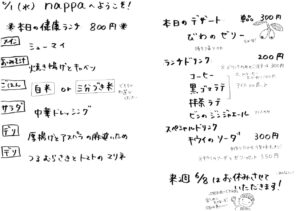 6/1 (水) nappaへようこそ!
※本日の健康ランチ 800円※
メイン シューマイ
焼き揚げとキャベツ
ごはん 白米 or 三分づき米
サラダ 中華ドレッシング
デリ 厚揚げとアスパラの麻婆いため
デリ つるむらさきとトマトのマリネ
本日のデザート 単品 300円
びわのゼリー
ランチドリンク 200円
コーヒー
黒ゴマラテ
抹茶ラテ
ビンのジンジャエール
スペシャルドリンク
キウイのソーダ 300円
350円
来週 6/8 はお休みさせて
いただきます!